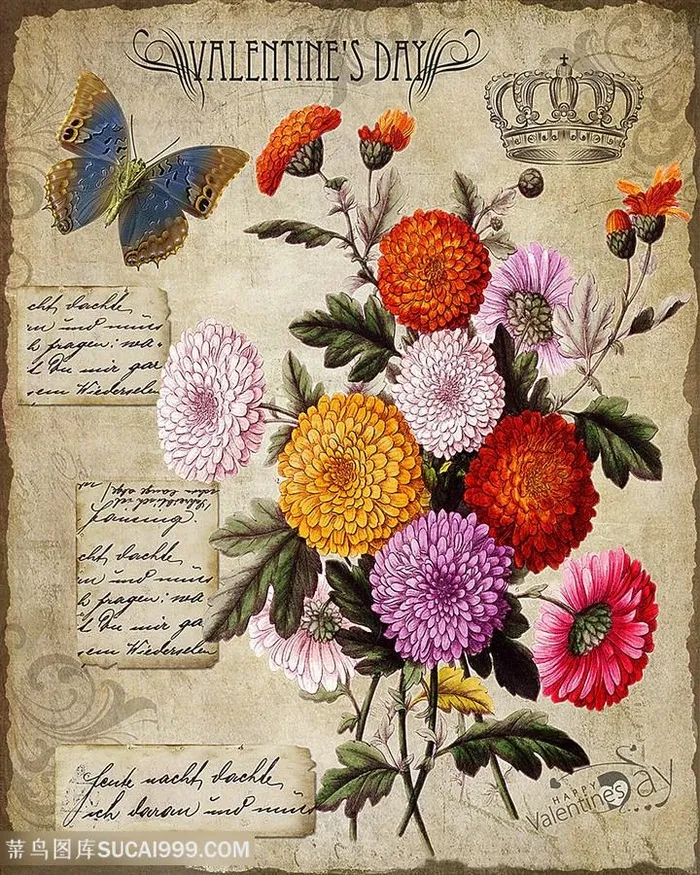 VALENTINE'S DAY
cht dachte
und
h fragen: wa
Du mir ga
sem Wiedersehn
pausing.
cht dachte
und
h fragen: wa
Du mir ga
sem Wiedersehn
heute nacht dachte
ich daran und
HAPPY
Valentine's Day
菜鸟图库SUCAI999.COM